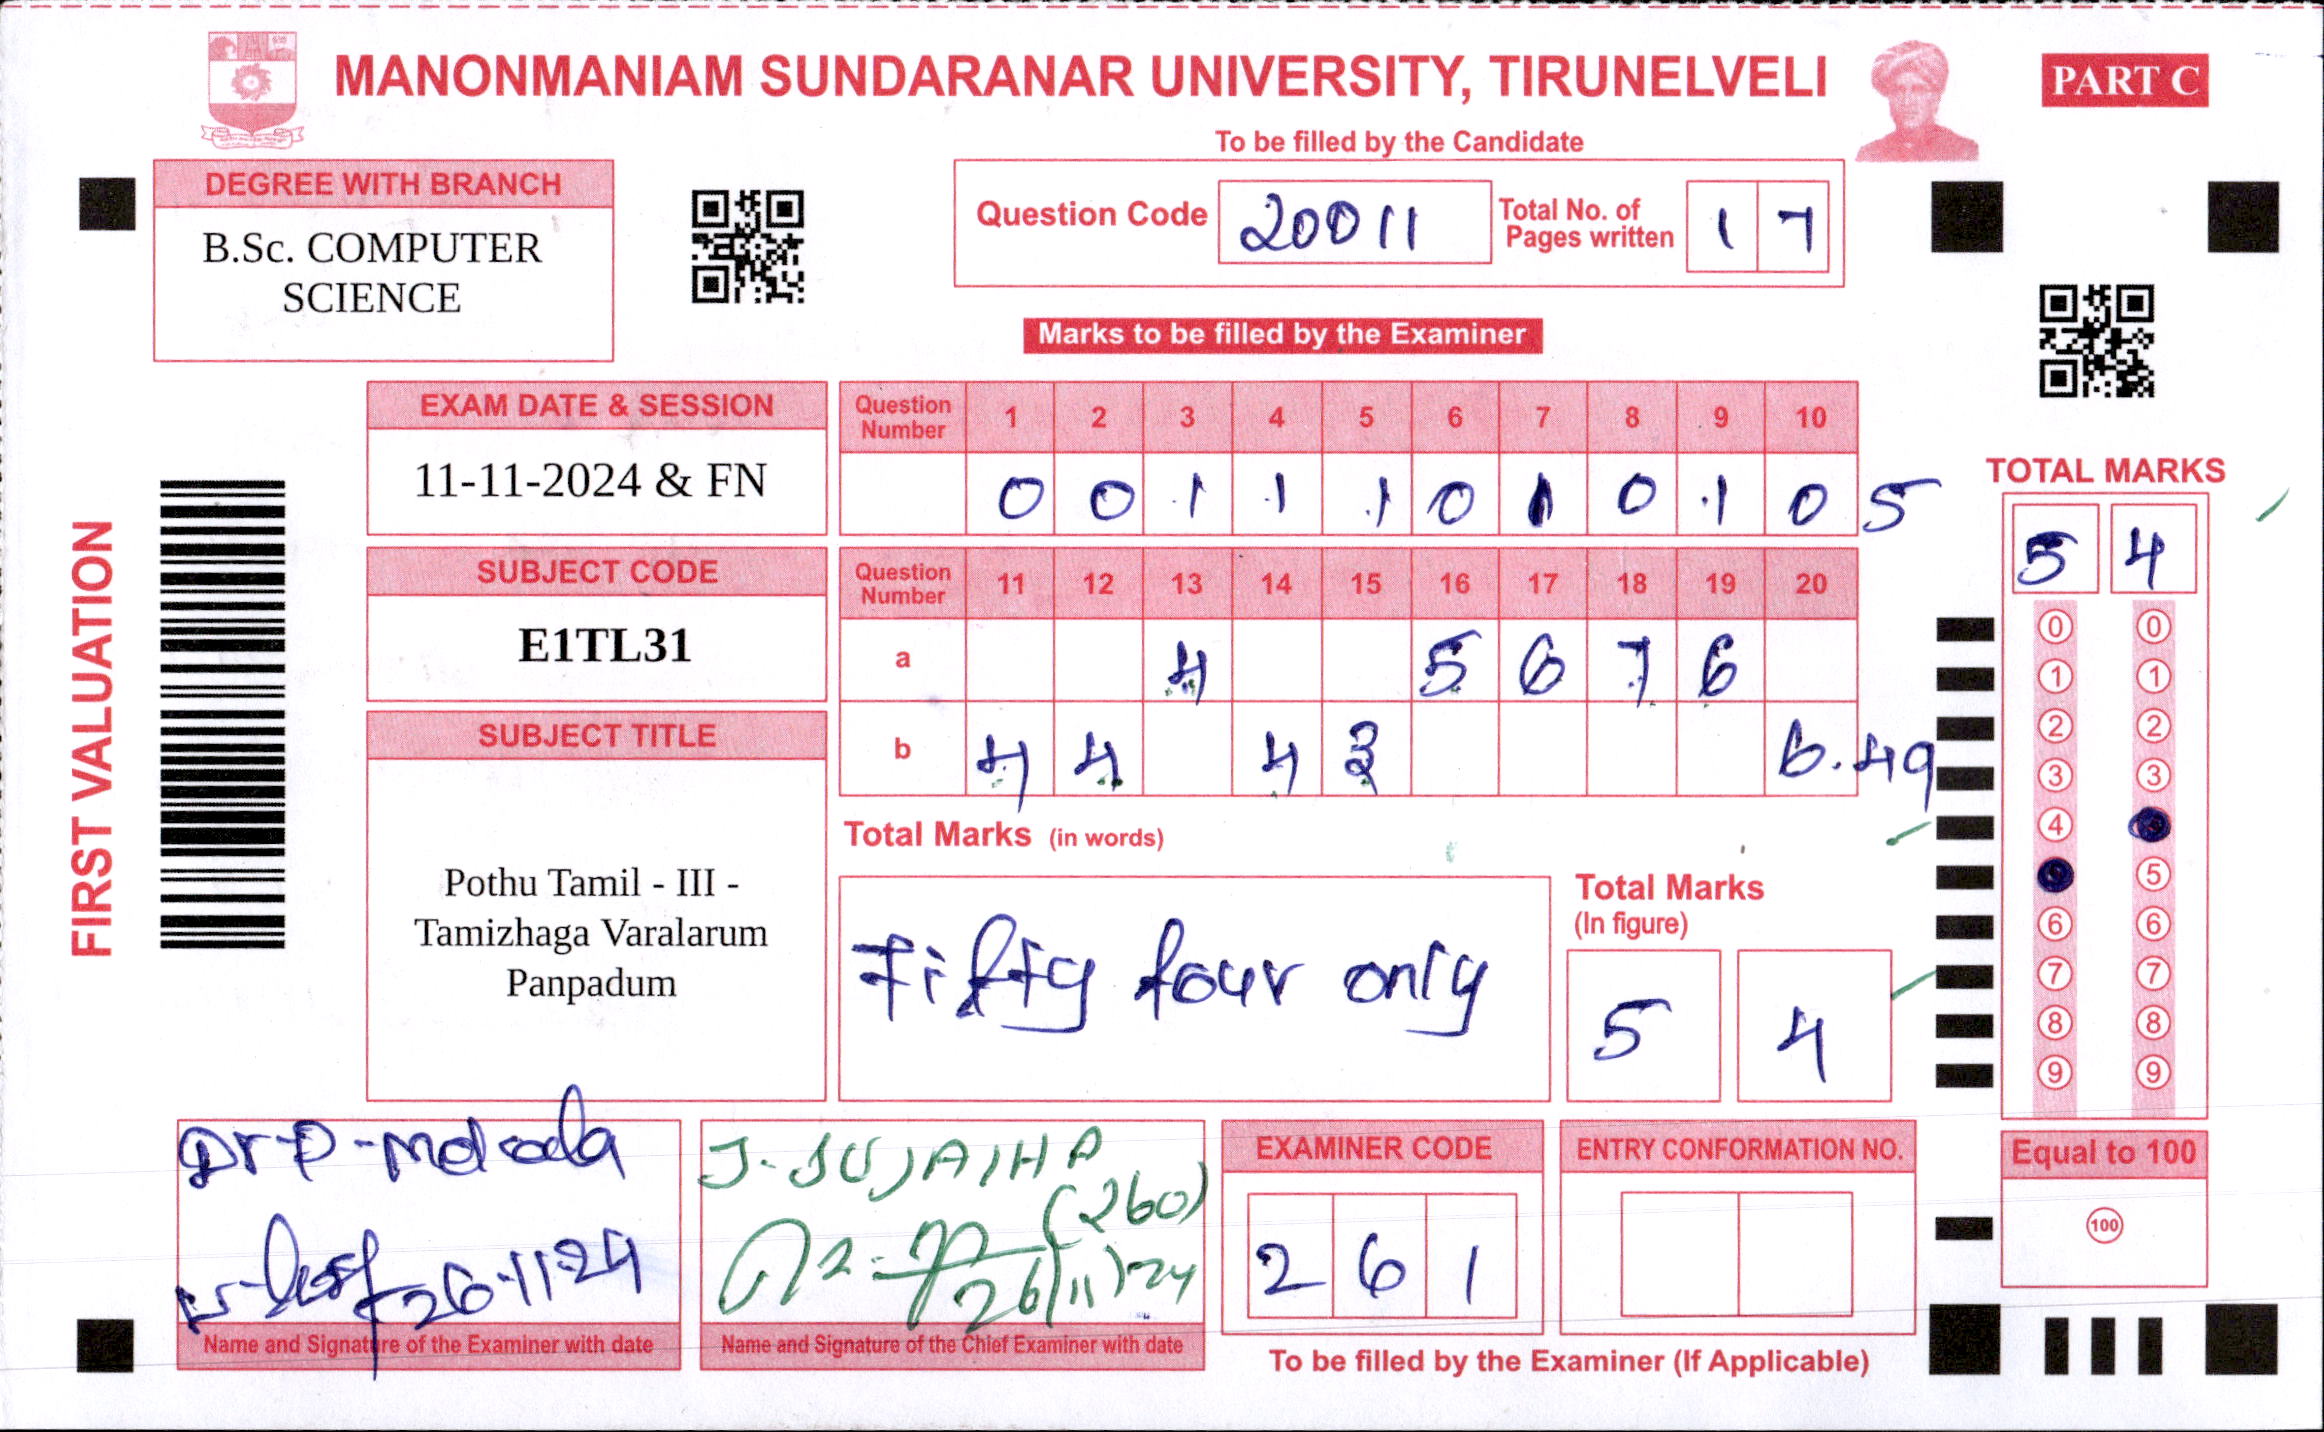 MANONMANIAM SUNDARANAR UNIVERSITY, TIRUNELVELI
PART C
To be filled by the Candidate
DEGREE WITH BRANCH
B.Sc. COMPUTER
SCIENCE
Question Code 20011 Total No. of Pages written 1 7
Marks to be filled by the Examiner
EXAM DATE & SESSION
11-11-2024 & FN
Question Number 1 2 3 4 5 6 7 8 9 10
0 0 1 1 1 0 1 0 1 0 5
SUBJECT CODE
E1TL31
Question Number 11 12 13 14 15 16 17 18 19 20
a 4 5 6 7 6
b 4 4 4 3 6. 49
SUBJECT TITLE
Pothu Tamil - III -
Tamizhaga Varalarum
Panpadum
FIRST VALUATION
Total Marks (in words)
Fifty four only
Total Marks
(In figure)
5 4
TOTAL MARKS
5 4
0 0
1 1
2 2
3 3
4
5
6 6
7 7
8 8
9 9
26.11.24
Name and Signature of the Examiner with date
J. SUJAIHA
(260)
26/11/24
Name and Signature of the Chief Examiner with date
EXAMINER CODE
2 6 1
ENTRY CONFORMATION NO.
To be filled by the Examiner (If Applicable)
Equal to 100
100